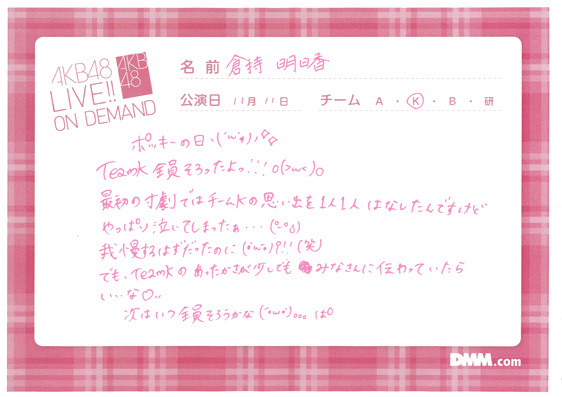 AKB48
LIVE!!
ON DEMAND
AKB
48
名前 倉持 明日香
公演日 11月 11日 チーム A・K・B・研
ポッキーの日ヽ(´w`*)ノ
TeamK 全員そろったよっ!!!o(>w<)o
最初の寸劇ではチームKの思い出を1人1人はなしたんですけど
やっぱり泣いてしまったぁ・・・
我慢するはずだったのに(°w°)?!!(笑)
でも、TeamKのあったかさが少しでもみなさんに伝わっていたら
い・いな♡〃
次はいつ全員そろうかな(´・w・`)...
DMM.com